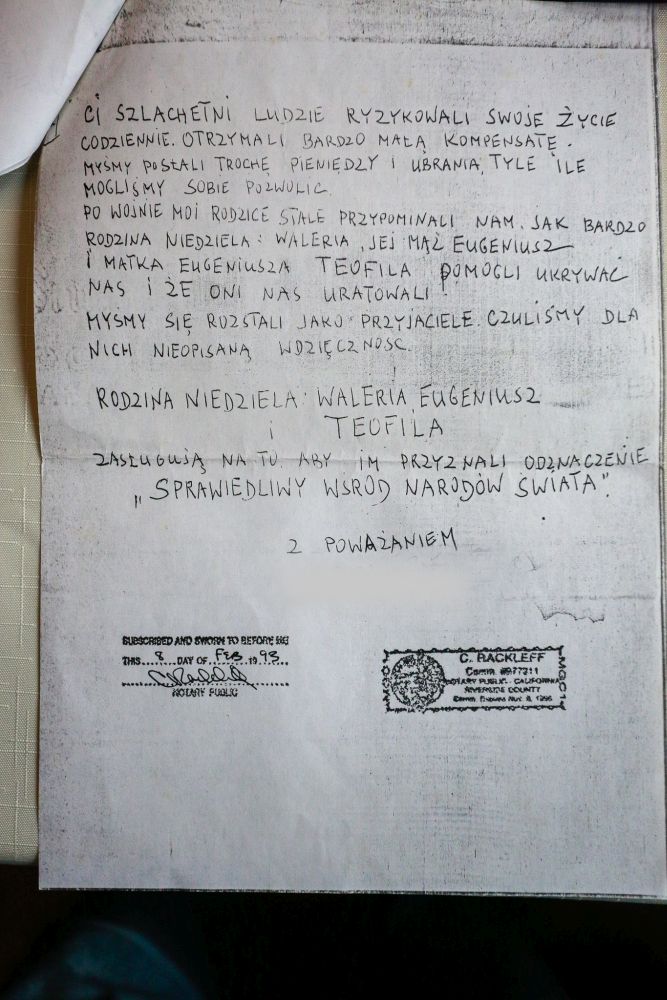 CI SZLACHETNI LUDZIE RYZYKOWALI SWOJE ŻYCIE
CODZIENNIE. OTRZYMALI BARDZO MAŁĄ KOMPENSATĘ.
MYŚMY POSŁALI TROCHĘ PIENIĘDZY I UBRANIA, TYLE ILE
MOGLIŚMY SOBIE POZWOLIC.
PO WOJNIE MOI RODZICE STALE PRZYPOMINALI NAM. JAK BARDZO
RODZINA NIEDZIELA: WALERIA, JEJ MĄŻ EUGENIUSZ
I MATKA EUGENIUSZA TEOFILA POMOGLI UKRYWAĆ
NAS I ŻE ONI NAS URATOWALI!
MYŚMY SIĘ ROZSTALI JAKO PRZYJACIELE. CZULIŚMY DLA
NICH NIEOPISANĄ WDZIĘCZNOSC.
RODZINA NIEDZIELA: WALERIA, EUGENIUSZ
i TEOFILA
ZASŁUGUJĄ NA TO. ABY IM PRZYZNALI ODZNACZENIE
„SPRAWIEDLIWY WSRÓD NARODÓW ŚWIATA".
Z POWAŻANIEM
SUBSCRIBED AND SWORN TO BEFORE ME
THIS 8 DAY OF FEB 1993
NOTARY PUBLIC
C. RACKLEFF
Comm. #977211
NOTARY PUBLIC - CALIFORNIA
RIVERSIDE COUNTY
Comm. Expires Nov. 8, 1996